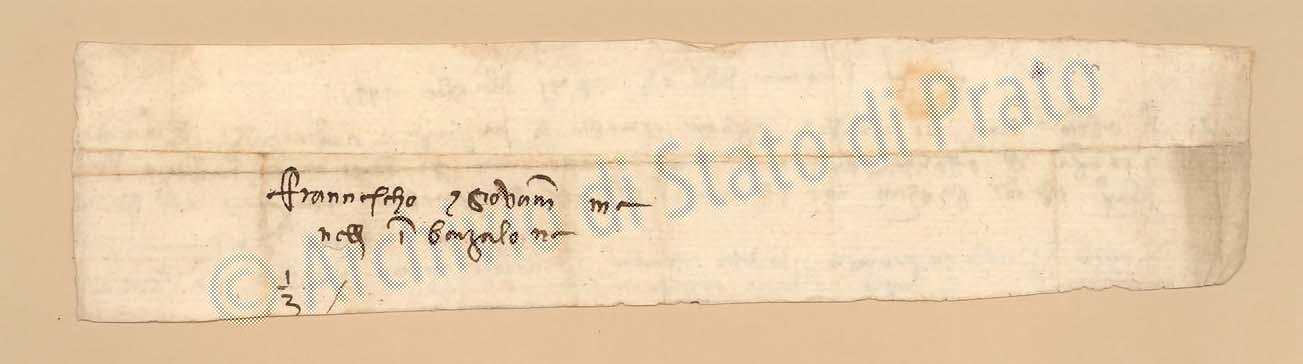 Francescho e Giovani me
nelli in barzalona
1/3 /
© Archivio di Stato di Prato